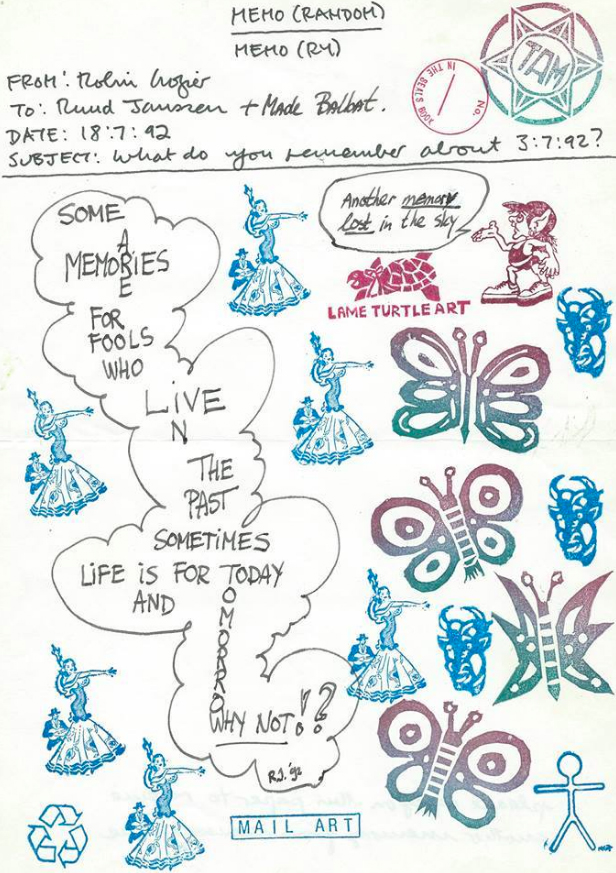 MEMO (RANDOM)
MEMO (RM)
FROM: Robin Crozier
TO: Ruud Janssen + Made Balbat.
DATE: 18:7:92
SUBJECT: What do you remember about 3:7:92?
TAM
No.
IN THE SEALS BOOK
Another memory
lost in the sky
LAME TURTLE ART
SOME
ARE
MEMORIES
FOR
FOOLS
WHO
LiVE
iN
THE
PAST
SOMETiMES
LiFE iS FOR TODAY
AND
TOMORROW
WHY NOT!?
R.J. '92
MAIL ART